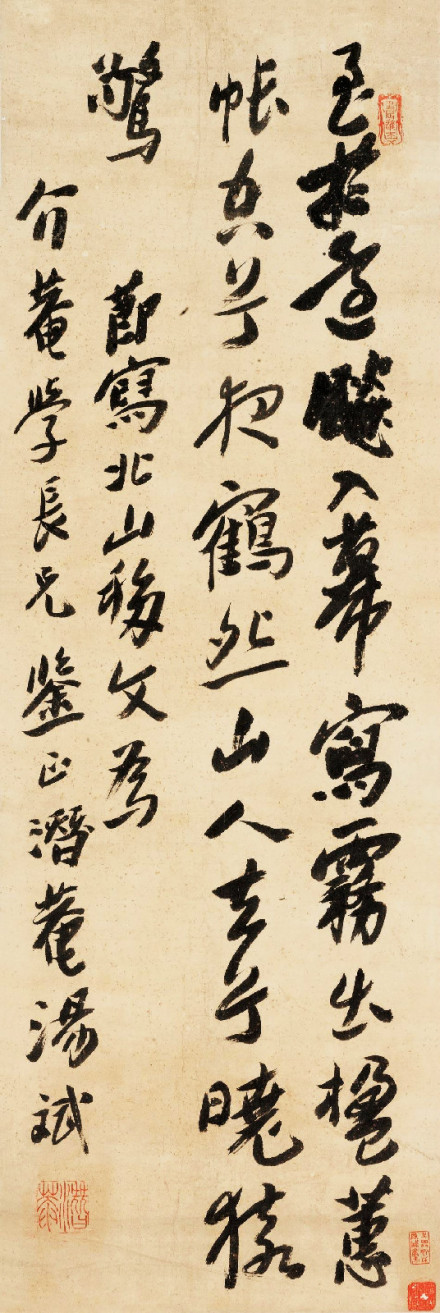 至於還飈入幕寫霧出楹蕙
帳空兮夜鶴怨山人去兮曉猿
驚
節寫北山移文為
介菴學長兄鑒正潛菴湯斌
潛菴